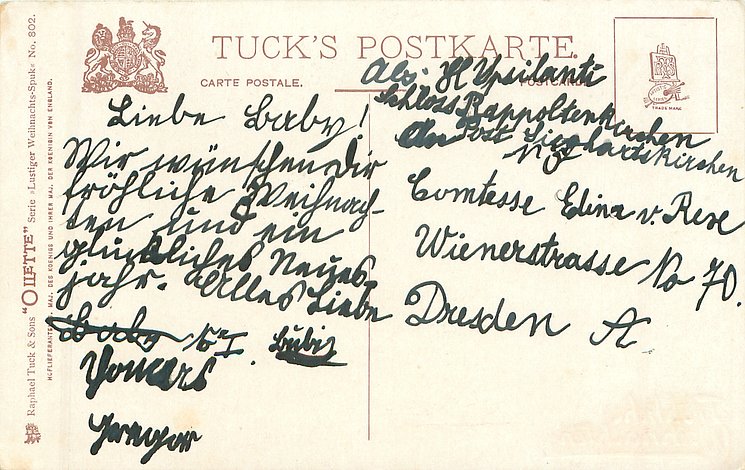 TUCK'S POSTKARTE.
CARTE POSTALE.
POSTCARD
TRADE MARK
Raphael Tuck & Sons "OILETTE" Serie »Lustiger Weihnachts-Spuk« No. 802.
HOFLIEFERANTEN I. MAJ. DES KOENIGS UND IHRER MAJ. DER KOENIGIN VON ENGLAND.
Abs: H Ypsilanti
Schloss Rappoltenkirchen
An Post Sieghartskirchen
NÖ
Liebe Baby!
Wir wünschen Dir
fröhliche Weihnach-
ten und ein
glückliches Neues-
jahr. Alles Liebe
Baby
Bubi
Gregor
Comtesse Edina v. Rexe
Wienerstrasse No 70.
Dresden A